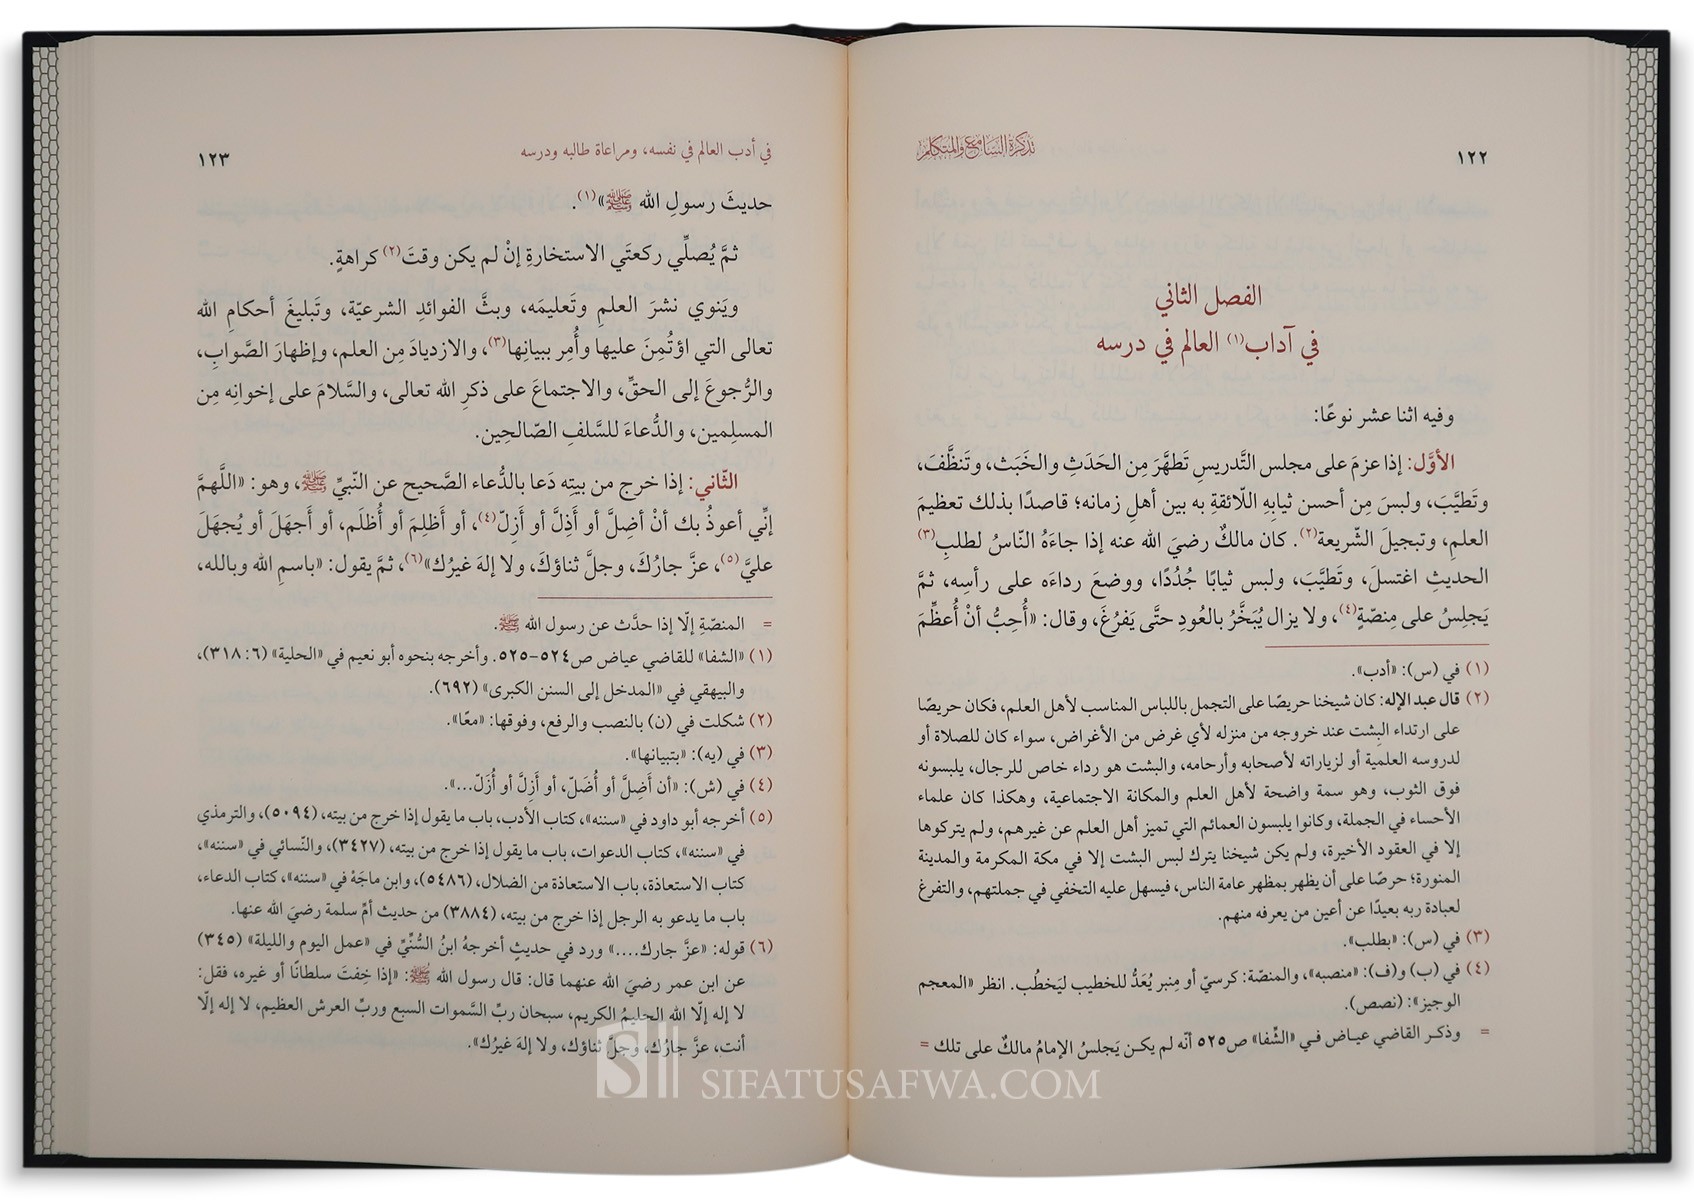 ١٢٢
تذكرة السامع والمتكلم
الفصل الثاني
في آداب(١) العالم في درسه
وفيه اثنا عشر نوعًا:
الأوَّل: إذا عزمَ على مجلس التَّدريسِ تَطهَّرَ مِن الحَدَثِ والخَبَث، وتَنظَّفَ،
وتَطيَّبَ، ولبسَ مِن أحسن ثيابِهِ اللّائقةِ به بين أهلِ زمانه؛ قاصدًا بذلك تعظيمَ
العلمِ، وتبجيلَ الشّريعة(٢). كان مالكٌ رضيَ الله عنه إذا جاءَهُ النّاسُ لطلبِ(٣)
الحديثِ اغتسلَ، وتَطيَّبَ، ولبس ثيابًا جُدُدًا، ووضعَ رداءَه على رأسِه، ثمَّ
يَجلِسُ على مِنصّةٍ(٤)، ولا يزال يُبَخَّرُ بالعُودِ حتَّى يَفرُغَ، وقال: «أُحِبُّ أنْ أُعظِّمَ
(١) في (س): «أدب».
(٢) قال عبد الإله: كان شيخنا حريصًا على التجمل باللباس المناسب لأهل العلم، فكان حريصًا
على ارتداء البِشت عند خروجه من منزله لأي غرض من الأغراض، سواء كان للصلاة أو
لدروسه العلمية أو لزياراته لأصحابه وأرحامه، والبشت هو رداء خاص للرجال، يلبسونه
فوق الثوب، وهو سمة واضحة لأهل العلم والمكانة الاجتماعية، وهكذا كان علماء
الأحساء في الجملة، وكانوا يلبسون العمائم التي تميز أهل العلم عن غيرهم، ولم يتركوها
إلا في العقود الأخيرة، ولم يكن شيخنا يترك لبس البشت إلا في مكة المكرمة والمدينة
المنورة؛ حرصًا على أن يظهر بمظهر عامة الناس، فيسهل عليه التخفي في جملتهم، والتفرغ
لعبادة ربه بعيدًا عن أعين من يعرفه منهم.
(٣) في (س): «بطلب».
(٤) في (ب) و(ف): «منصبه»، والمنصّة: كرسيّ أو مِنبر يُعَدُّ للخطيب ليَخطُب. انظر «المعجم
الوجيز»: (نصص).
= وذكر القاضي عياض في «الشِّفا» ص٥٢٥ أنّه لم يكن يَجلسُ الإمامُ مالكٌ على تلك =
في أدب العالم في نفسه، ومراعاة طالبه ودرسه
١٢٣
حديثَ رسولِ الله ﷺ»(١).
ثمَّ يُصلِّي ركعتَي الاستخارةِ إنْ لم يكن وقتَ(٢) كراهةٍ.
ويَنوي نشرَ العلمِ وتَعليمَه، وبثَّ الفوائدِ الشرعيّة، وتَبليغَ أحكامِ الله
تعالى التي اؤتُمِنَ عليها وأُمِر ببيانِها(٣)، والازديادَ مِن العلم، وإظهارَ الصَّوابِ،
والرُّجوعَ إلى الحقِّ، والاجتماعَ على ذكرِ الله تعالى، والسَّلامَ على إخوانِه مِن
المسلِمين، والدُّعاءَ للسَّلفِ الصّالحِين.
الثّاني: إذا خرج من بيتِه دَعا بالدُّعاء الصَّحيح عن النّبيِّ ﷺ، وهو: «اللَّهمَّ
إنِّي أعوذُ بك أنْ أضِلَّ أو أَذِلَّ أو أَزِلّ(٤)، أو أَظلِمَ أو أُظلَم، أو أَجهَلَ أو يُجهَلَ
عليَّ(٥)، عزَّ جارُكَ، وجلَّ ثناؤكَ، ولا إلهَ غيرُك»(٦)، ثمَّ يقول: «باسمِ الله وبالله،
= المنصّةِ إلّا إذا حدَّث عن رسول الله ﷺ.
(١) «الشفا» للقاضي عياض ص٥٢٤-٥٢٥. وأخرجه بنحوه أبو نعيم في «الحلية» (٦: ٣١٨)،
والبيهقي في «المدخل إلى السنن الكبرى» (٦٩٢).
(٢) شكلت في (ن) بالنصب والرفع، وفوقها: «معًا».
(٣) في (يه): «بتبيانها».
(٤) في (ش): «أن أَضِلَّ أو أُضَلّ، أو أَزِلَّ أو أُزَلّ...».
(٥) أخرجه أبو داود في «سننه»، كتاب الأدب، باب ما يقول إذا خرج من بيته، (٥٠٩٤)، والترمذي
في «سننه»، كتاب الدعوات، باب ما يقول إذا خرج من بيته، (٣٤٢٧)، والنّسائي في «سننه»،
كتاب الاستعاذة، باب الاستعاذة من الضلال، (٥٤٨٦)، وابن ماجَهْ في «سننه»، كتاب الدعاء،
باب ما يدعو به الرجل إذا خرج من بيته، (٣٨٨٤) من حديث أمّ سلمة رضيَ الله عنها.
(٦) قوله: «عزَّ جارك....» ورد في حديثٍ أخرجهُ ابنُ السُّنِّيّ في «عمل اليوم والليلة» (٣٤٥)
عن ابن عمر رضيَ الله عنهما قال: قال رسول الله ﷺ: «إذا خِفتَ سلطانًا أو غيره، فقل:
لا إله إلّا الله الحليمُ الكريم، سبحان ربِّ السَّموات السبع وربِّ العرش العظيم، لا إله إلّا
أنت، عزَّ جارُك، وجلَّ ثناؤك، ولا إلهَ غيرُك».
SIFATUSAFWA.COM